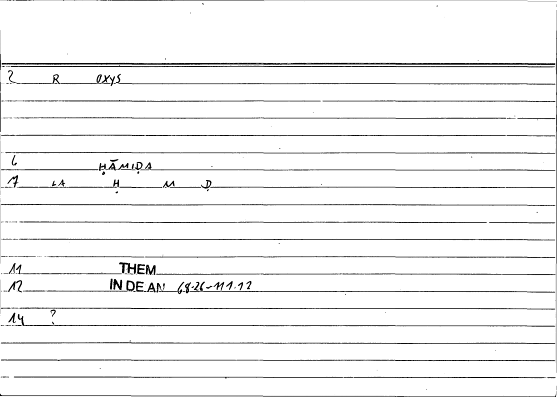 2 R OXYS
6 ḤĀMIḌA
7 LA Ḥ M Ḍ
11 THEM
12 IN DE AN 68.26-111.12
14 ?